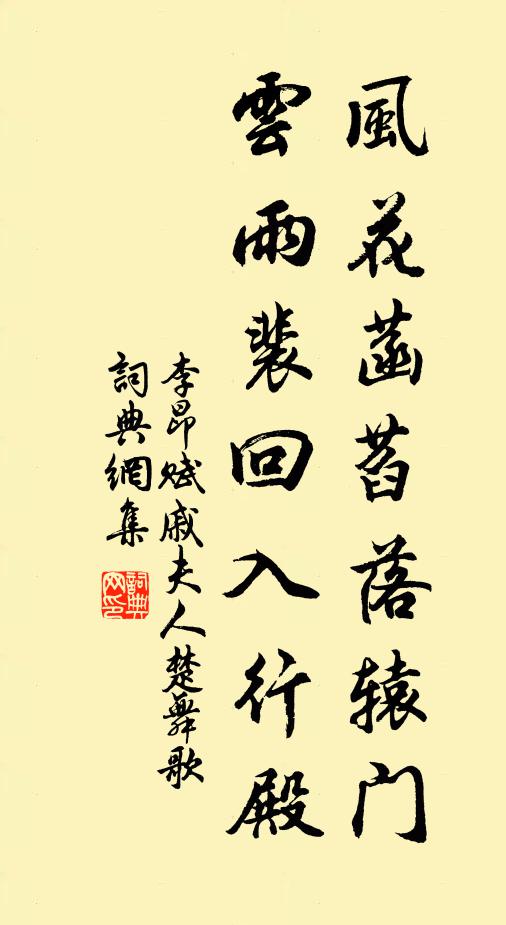 風花菡萏落辕门
雲雨裴回入行殿
李昂賦戚夫人楚舞歌
詞典網集
詞典网印